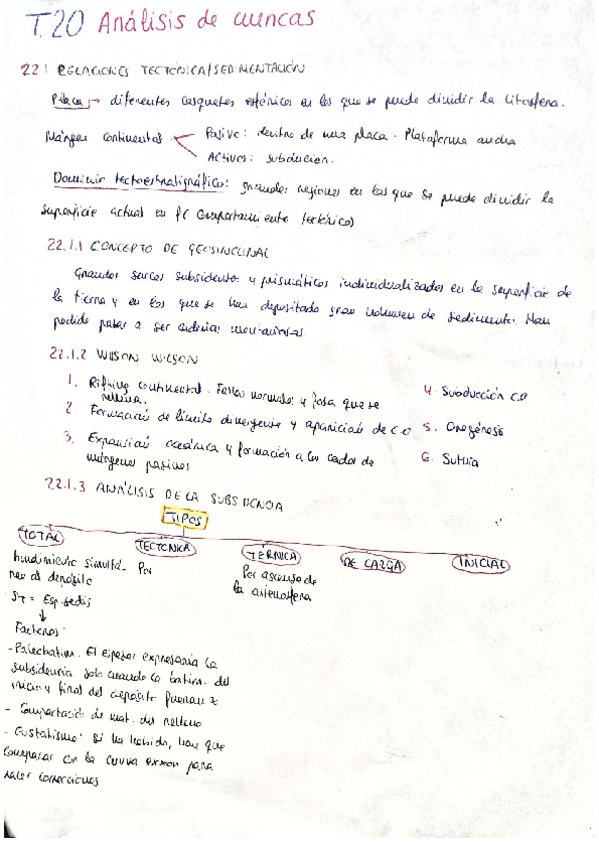 T.20 Análisis de cuencas
22.1 RELACIONES TECTÓNICA/SEDIMENTACIÓN
Placa → diferentes casquetes esféricos en los que se puede dividir la litosfera.
Márgen continental
Pasivo: dentro de una placa. Plataforma ancha
Activos: subducción.
Dominio tectoestratigráfico: grandes regiones en las que se puede dividir la
superficie actual en f( comportamiento tectónico)
22.1.1 CONCEPTO DE GEOSINCLINAL
Grandes surcos subsidentes y prismáticos individualizados en la superficie de
la tierra y en los que se han depositado gran volumen de sedimento. Han
podido pasar a ser cadenas montañosas
22.1.2 WILSON WILSON
1. Rifting continental. Fallas normales y fosa que se
rellena.
2. Formación de límite divergente y aparición de C.O
3. Expansión oceánica y formación a los lados de
márgenes pasivos
4. Subducción C.O
5. Orogénesis
6. Sutura
22.1.3 ANÁLISIS DE LA SUBSIDENCIA
TIPOS
TOTAL
TECTÓNICA
TÉRMICA
DE CARGA
INICIAL
hundimiento simultá-
neo al depósito
ST = Esp. sedis
↓
Factores:
- Paleobatim. El espesor expresaría la
subsidencia solo cuando la batim. del
inicio y final del depósito fueran =
- Compactación de mat. del relleno
- Eustatismo: si ha habido, hay que
comparar con la curva para
hacer correcciones
Por
Por ascenso de
la astenosfera